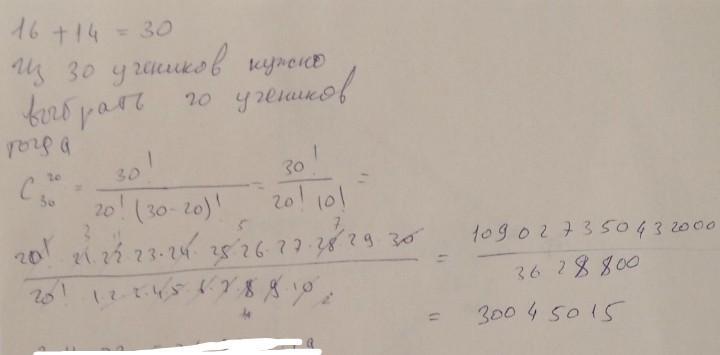 16 + 14 = 30
Из 30 учеников нужно
выбрать 20 учеников
тогда
C₃₀²⁰ = 30! / 20! (30-20)! = 30! / 20! 10! =
20! · 21 · 22 · 23 · 24 · 25 · 26 · 27 · 28 · 29 · 30 / 20! 1 · 2 · 3 · 4 · 5 · 6 · 7 · 8 · 9 · 10 = 109027350432000 / 3628800
= 30045015